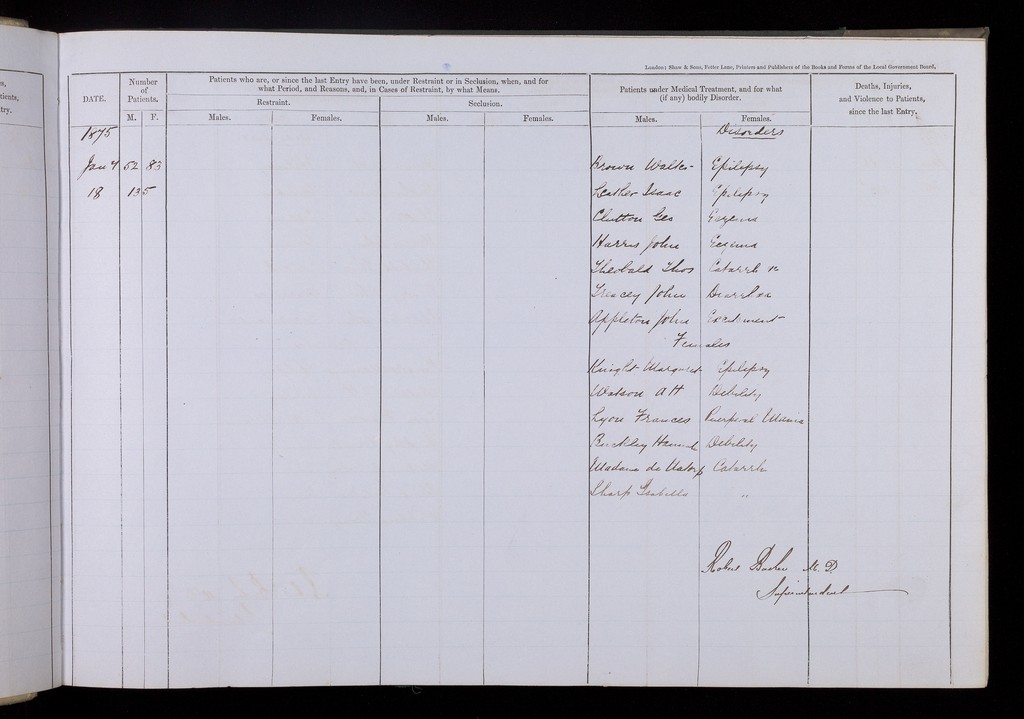 London: Shaw & Sons, Fetter Lane, Printers and Publishers of the Books and Forms of the Local Government Board.
DATE.
Number of Patients.
M. F.
Patients who are, or since the last Entry have been, under Restraint or in Seclusion, when, and for
what Period, and Reasons, and, in Cases of Restraint, by what Means.
Restraint. Seclusion.
Males. Females. Males. Females.
Patients under Medical Treatment, and for what
(if any) bodily Disorder.
Males. Females.
Deaths, Injuries,
and Violence to Patients,
since the last Entry.
1875 Disorders
Jan 52 83 Brown Walter Epilepsy
18 135 Leather Isaac Epilepsy
Clutton Geo Eczema
Harris John Eczema
Theobald Thos Catarrh
Treacey John Diarrhœa
Appleton John Excitement
Females
Knight Margaret Epilepsy
Watson A H Debility
Lyon Frances Puerperal Mania
Buckley Hannah Debility
Madame de Catarrh
Sharp Isabella "
Robert M. D.
Superintendent
tients,
try.